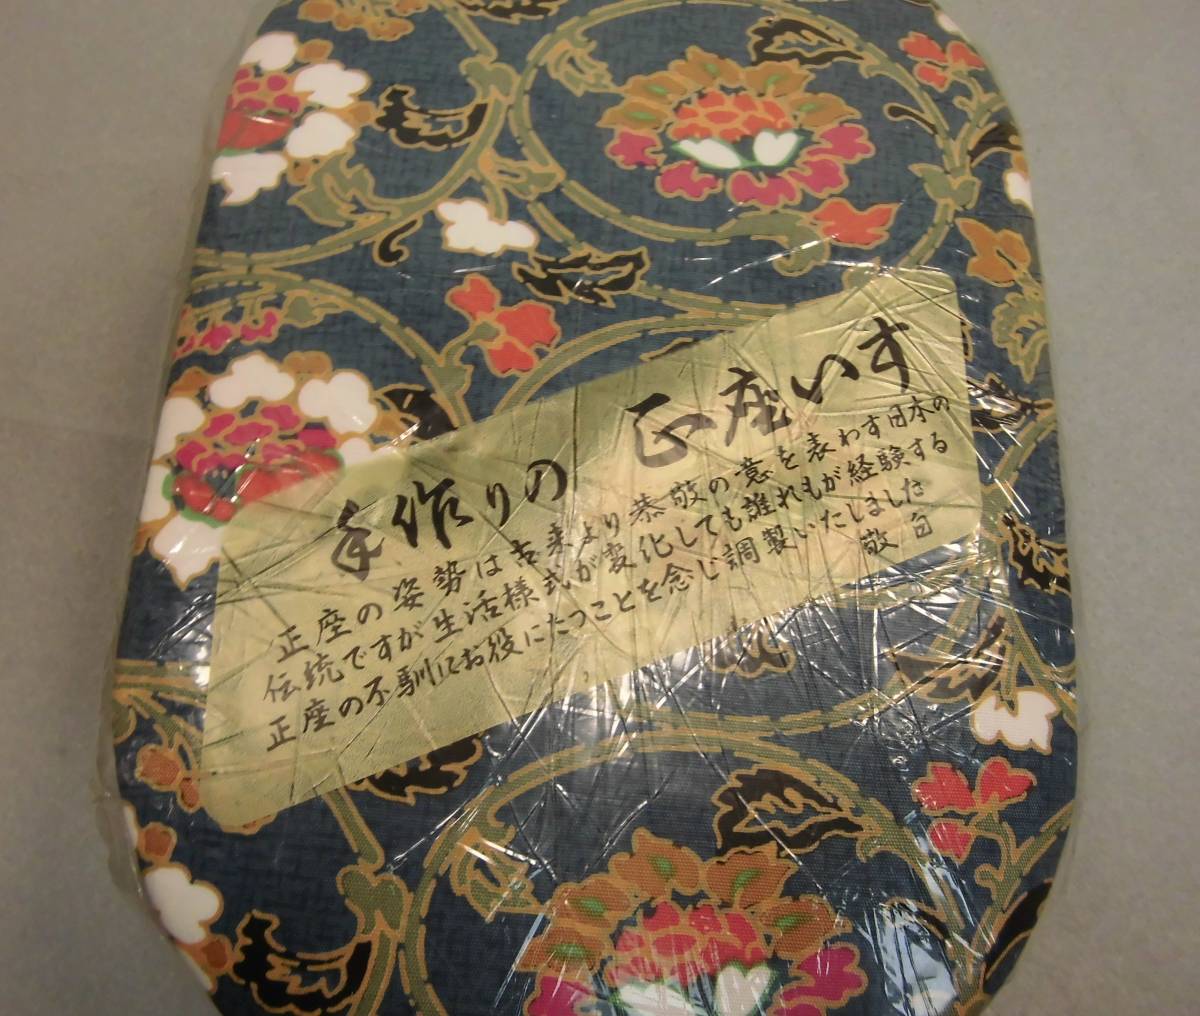 手作りの 正座いす
正座の姿勢は古来より恭敬の意を表わす日本の
伝統ですが生活様式が変化しても誰れもが経験する
正座の不馴にお役にたつことを念じ調製いたしました
敬白